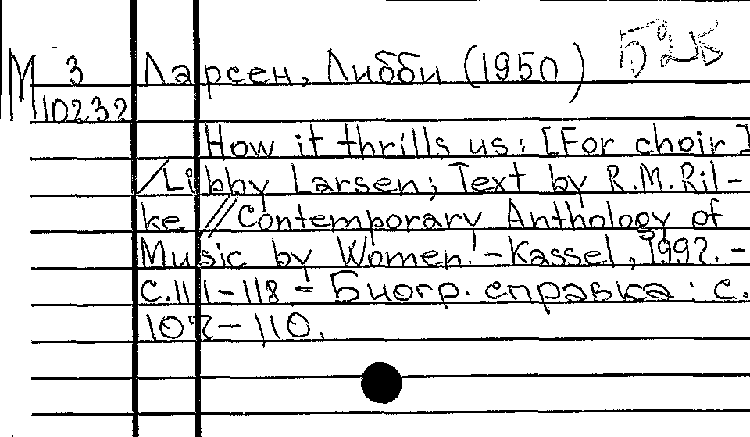 М 3 Ларсен, Либби (1950)
10232
How it thrills us: [For choir]
/Libby Larsen; Text by R.M.Ril-
ke // Contemporary Anthology of
Music by Women. - Kassel, 1997. -
С.111-118 - Биогр. справка: с.
107-110.